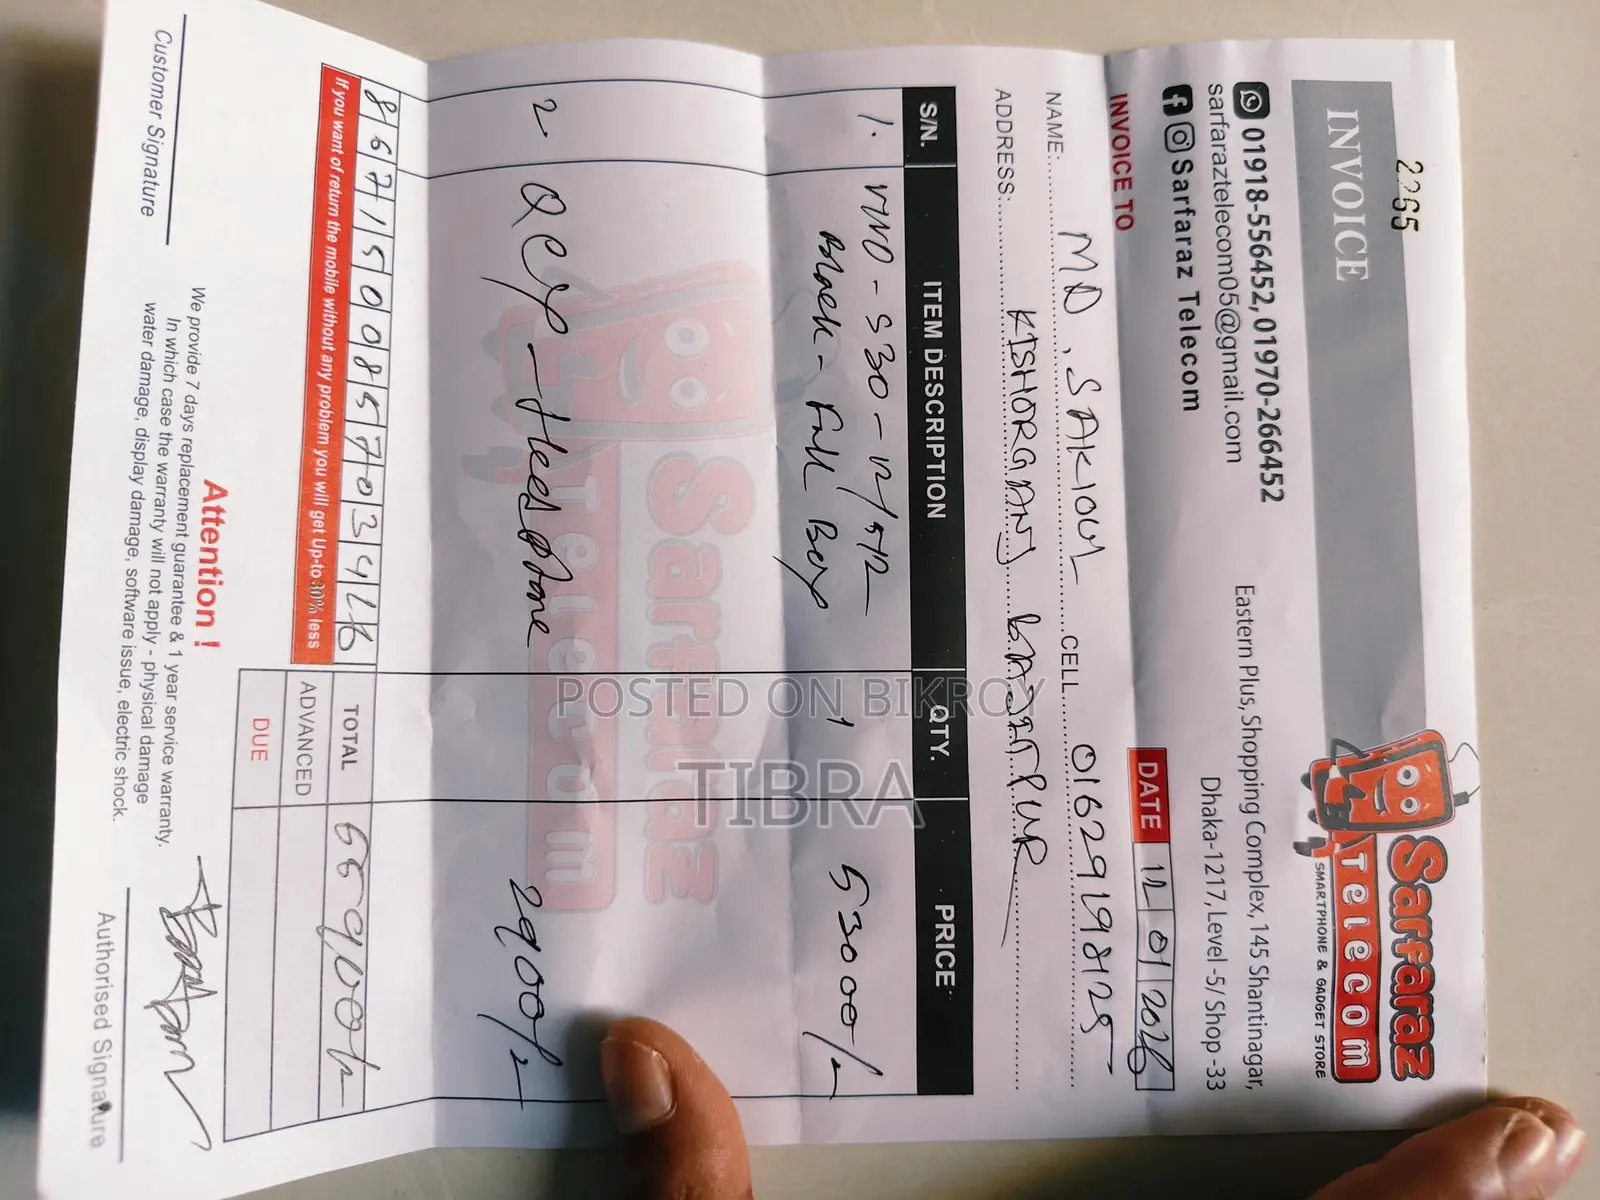 2265
INVOICE
Sarfaraz
Telecom
SMARTPHONE & GADGET STORE
01918-556452, 01970-266452
sarfaraztelecom05@gmail.com
Sarfaraz Telecom
Eastern Plus, Shopping Complex, 145 Shantinagar,
Dhaka-1217, Level -5/ Shop -33
INVOICE TO
DATE 12 01 2026
NAME: MD. SAKIOUL CELL 01629198125
ADDRESS: KISHORGANJ BAJITPUR
S/N. ITEM DESCRIPTION QTY. PRICE
1. VIVO - S30 - 12/512 1 53000/-
Black - Full Box
2 QCY - Headphone 2900/-
Sarfaraz
Telecom
POSTED ON BIKROY
TIBRA
867150085703416
If you want of return the mobile without any problem you will get Up-to 30% less
TOTAL 55900/-
ADVANCED
DUE
Attention !
We provide 7 days replacement guarantee & 1 year service warranty.
In which case the warranty will not apply - physical damage
water damage, display damage, software issue, electric shock.
Customer Signature
Authorised Signature